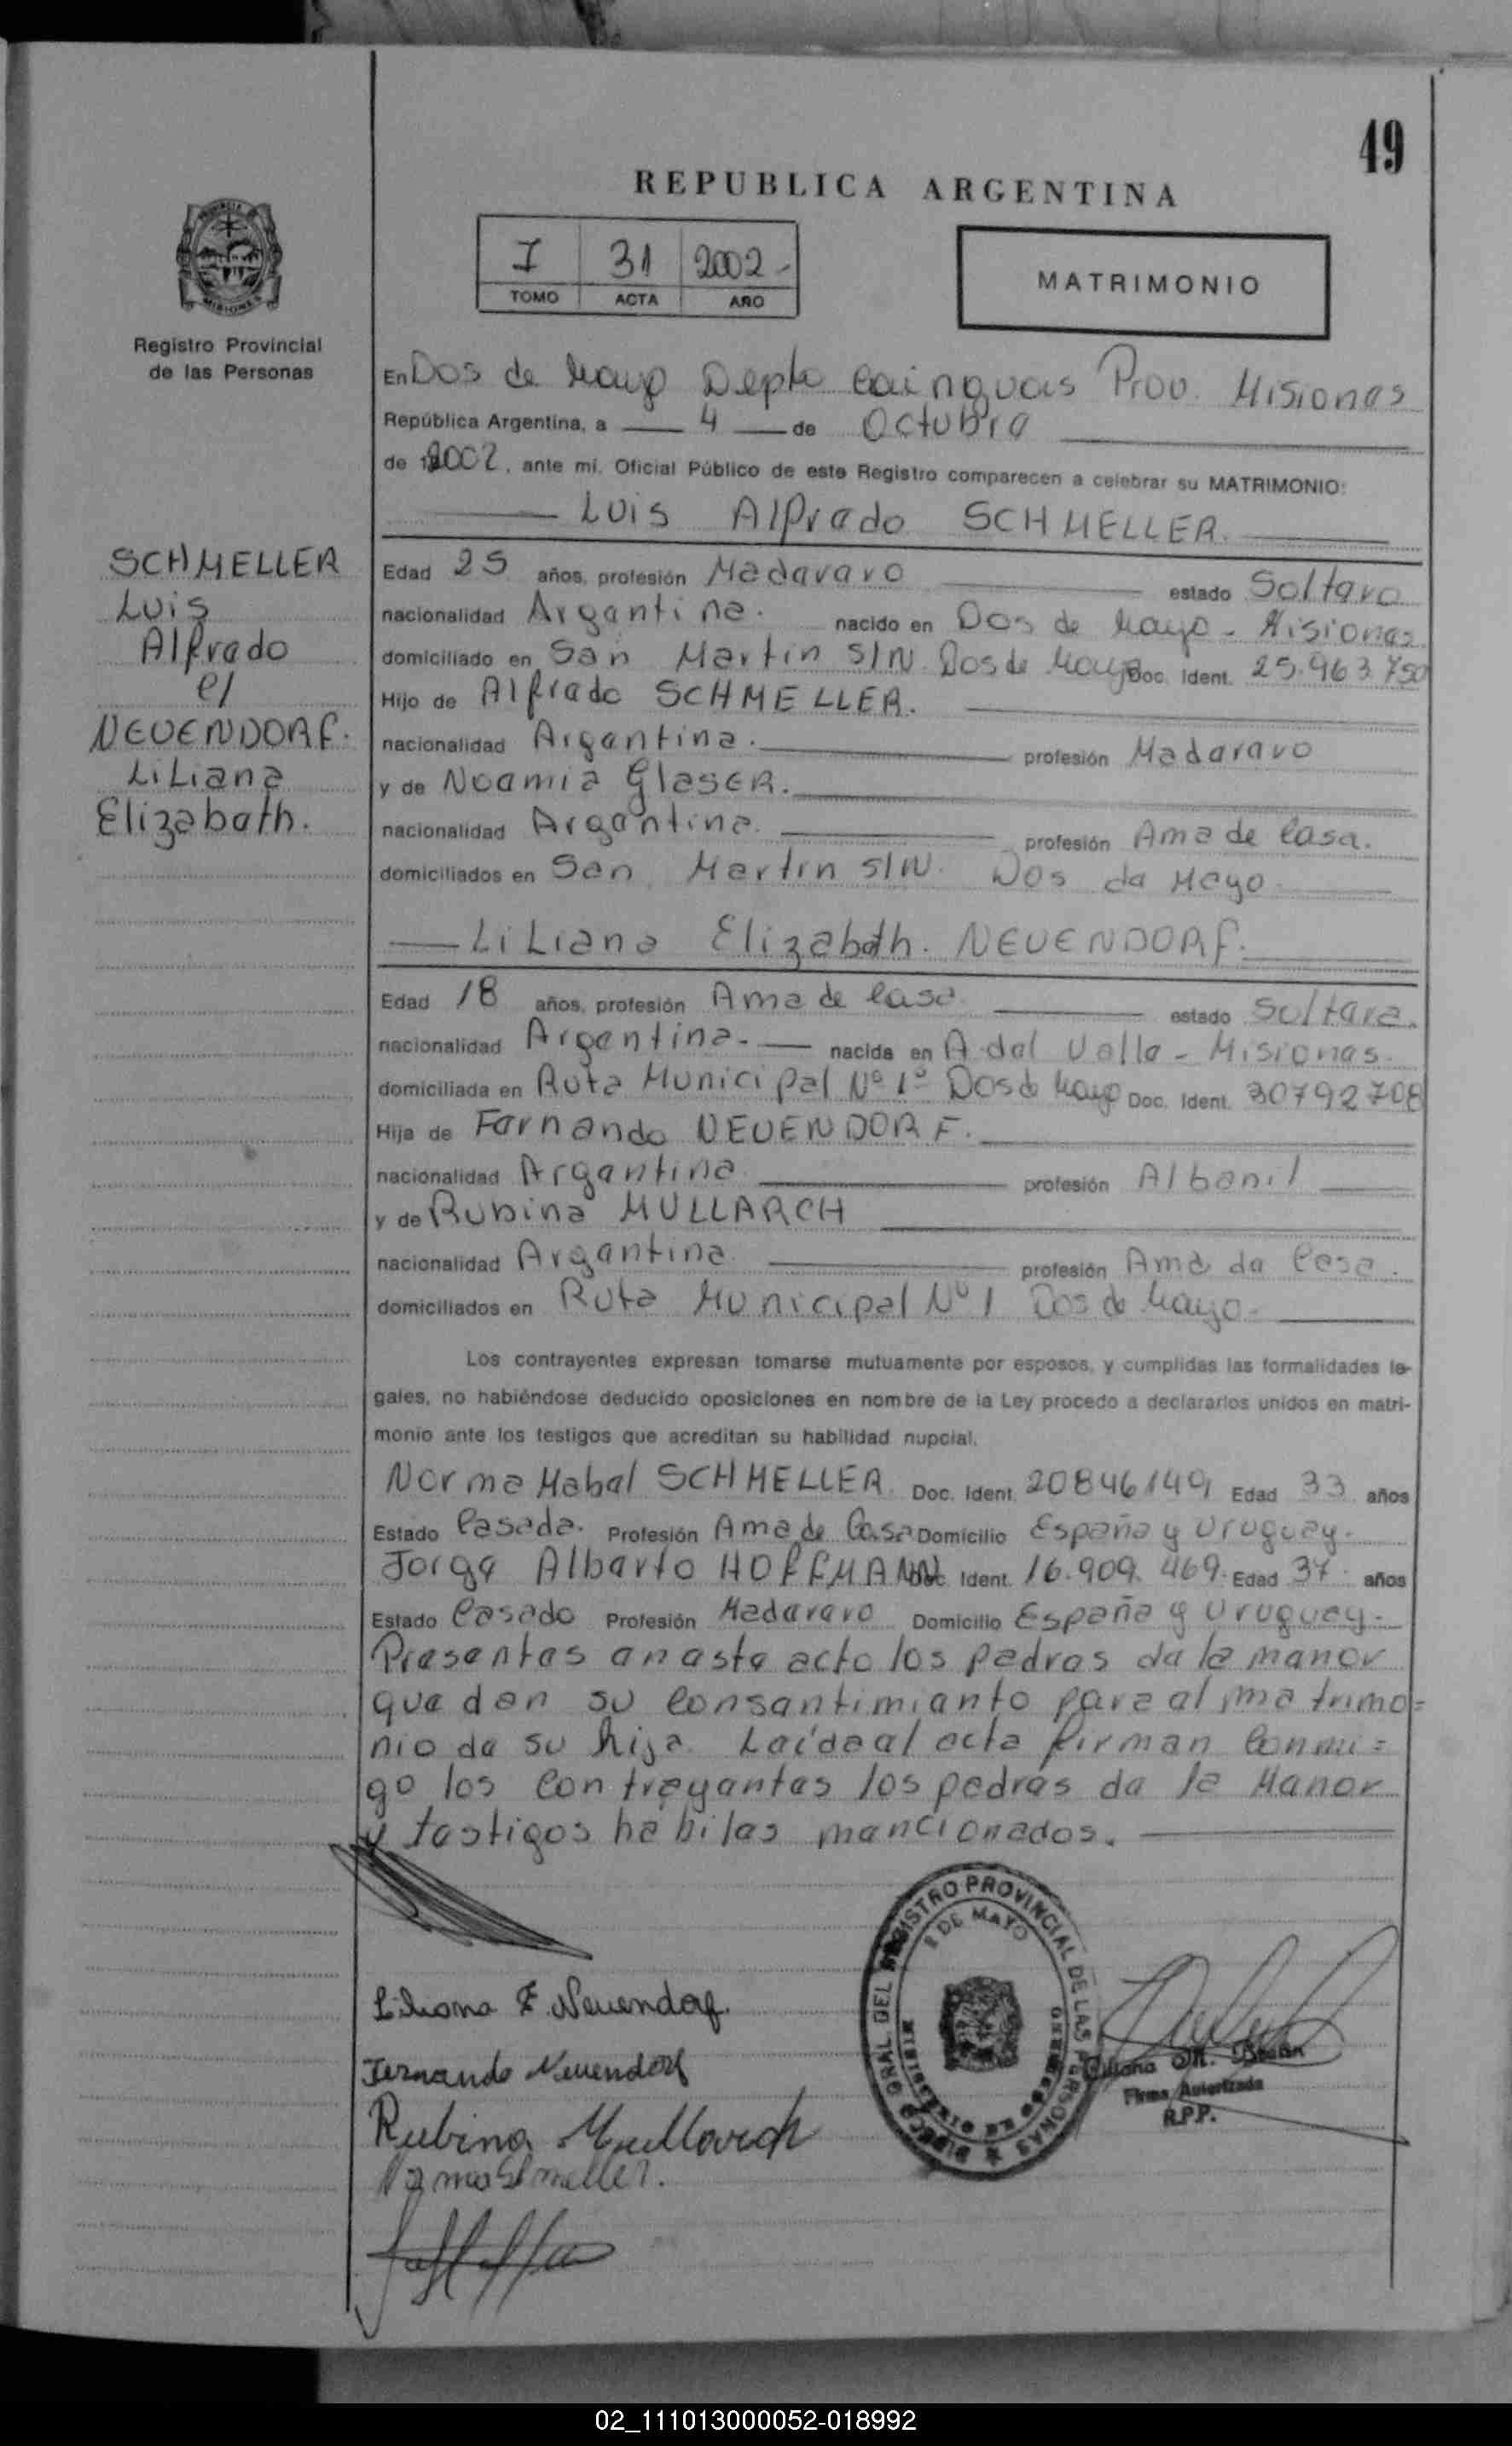 49
REPUBLICA ARGENTINA
I 31 2002-
TOMO ACTA AÑO
MATRIMONIO
Registro Provincial
de las Personas
En Dos de Mayo Depto Cainguas Prov. Misiones
República Argentina, a 4 de Octubre
de 2002, ante mí, Oficial Público de este Registro comparecen a celebrar su MATRIMONIO:
Luis Alfredo SCHMELLER.
SCHMELLER
Luis
Alfredo
c/
NEUENDORF.
Liliana
Elizabeth.
Edad 25 años, profesión Maderero estado Soltero
nacionalidad Argentina. nacido en Dos de Mayo - Misiones
domiciliado en San Martin S/N. Dos de Mayo Doc. Ident. 25.963.750
Hijo de Alfredo SCHMELLER.
nacionalidad Argentina. profesión Maderero
y de Noemia Glaser.
nacionalidad Argentina. profesión Ama de Casa.
domiciliados en San Martin S/N. Dos de Mayo
Liliana Elizabeth. NEUENDORF.
Edad 18 años, profesión Ama de Casa. estado Soltera.
nacionalidad Argentina. nacida en A. del Valle - Misiones.
domiciliada en Ruta Municipal Nº 1º Dos de Mayo Doc. Ident. 30792708
Hija de Fernando NEUENDORF.
nacionalidad Argentina profesión Albanil
y de Rubina MULLARCH
nacionalidad Argentina. profesión Ama de Casa.
domiciliados en Ruta Municipal Nº 1 Dos de Mayo.
Los contrayentes expresan tomarse mutuamente por esposos, y cumplidas las formalidades le-
gales, no habiéndose deducido oposiciones en nombre de la Ley procedo a declararlos unidos en matri-
monio ante los testigos que acreditan su habilidad nupcial.
Norma Mabel SCHMELLER. Doc. Ident. 20846149 Edad 33 años
Estado Casada. Profesión Ama de Casa Domicilio España y Uruguay.
Jorge Alberto HOFFMANN Doc. Ident. 16.909.469. Edad 37. años
Estado Casado Profesión Maderero Domicilio España y Uruguay.
Presentes en este acto los padres de la menor
que dan su consentimiento para el matrimo=
nio de su hija. Leída el acta firman conmi=
go los contrayentes los padres de la Menor
y testigos habiles mencionados.
Liliana E. Neuendorf.
Fernando Neuendorf
Rubina Mullarch
Norma Schmeller.
REGISTRO PROVINCIAL DE LAS PERSONAS
2 DE MAYO
Firma Autorizada
R.P.P.
02_111013000052-018992